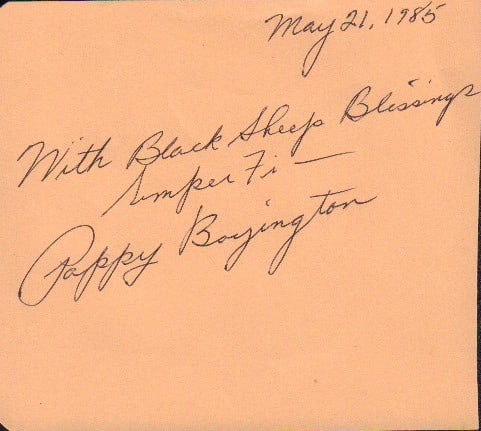 May 21, 1985
With Black Sheep Blessings
Semper Fi —
Pappy Boyington